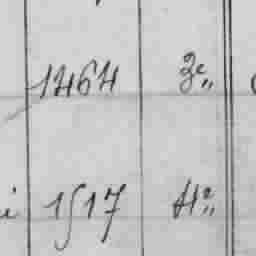 1464 3e„
i 1517 4e„